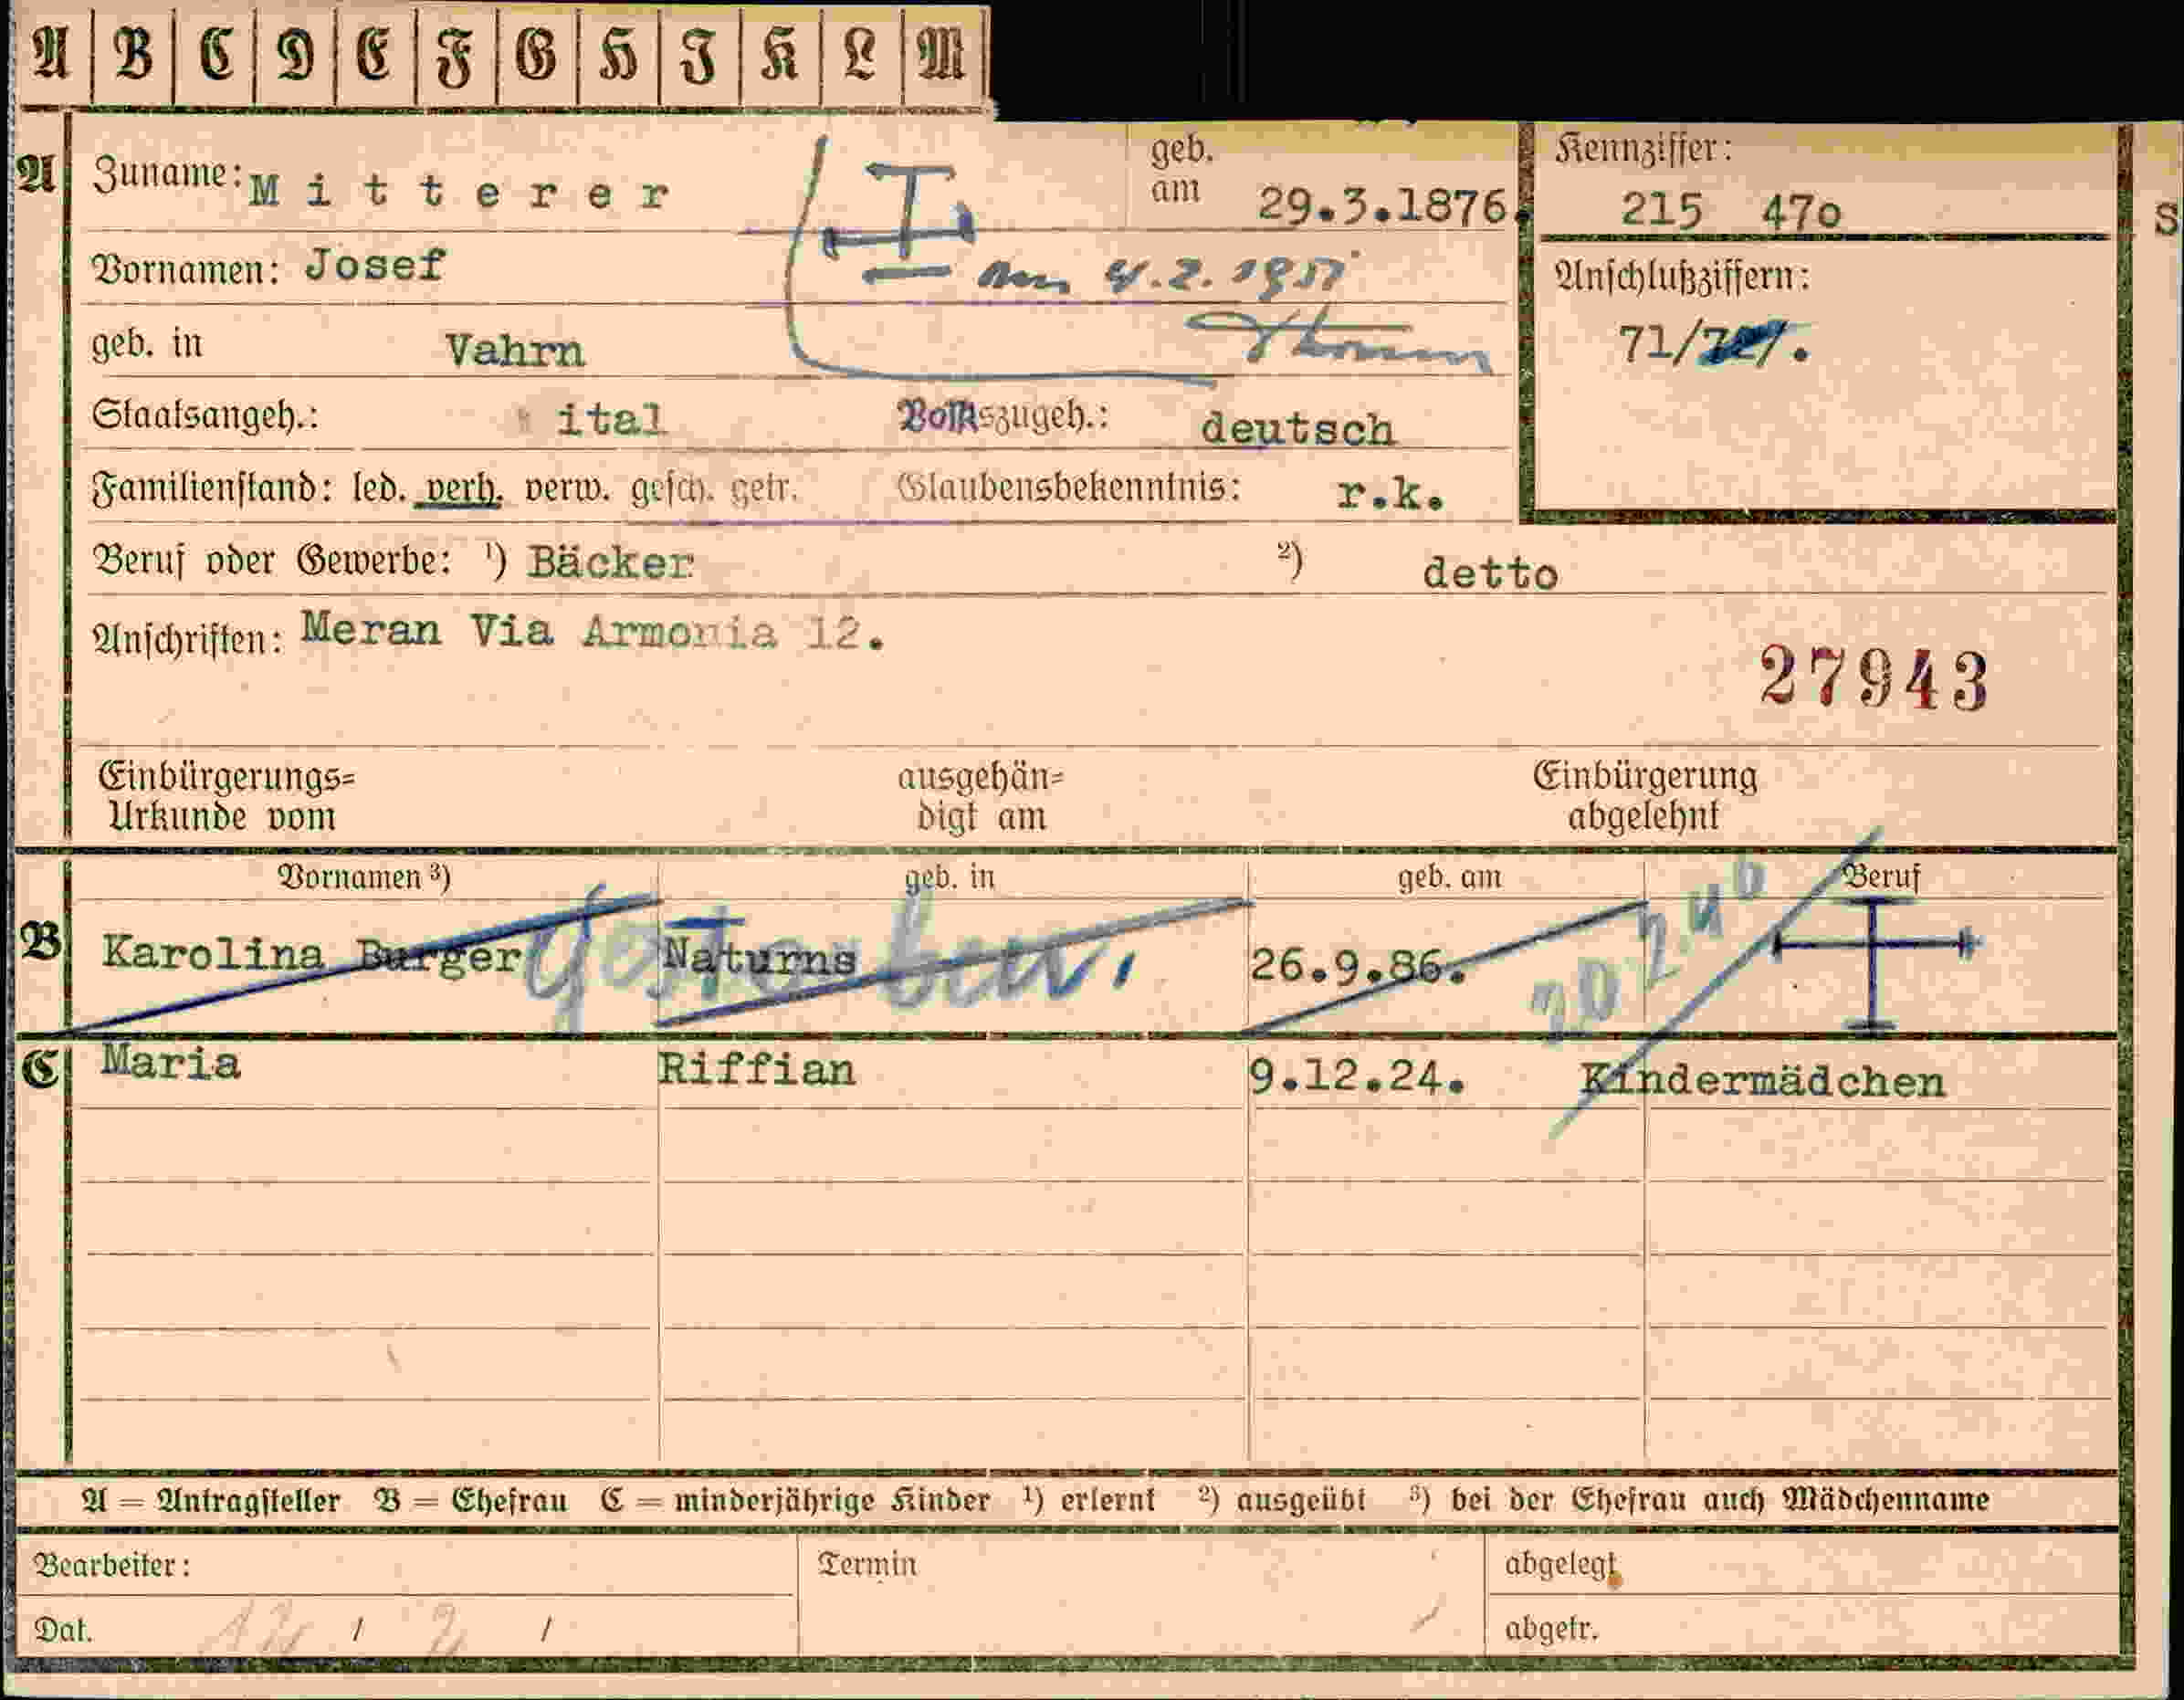 A B C D E F G H I K L M
A Zuname: Mitterer geb. am 29.3.1876. Kennziffer: 215 47o
Vornamen: Josef am 4.2.1951 Anschlußziffern:
geb. in Vahrn 71/
Staatsangeh.: ital Volkszugeh.: deutsch
Familienstand: led. verh. verw. gesch. getr. Glaubensbekenntnis: r.k.
Beruf oder Gewerbe: ¹) Bäcker ²) detto
Anschriften: Meran Via Armonia 12.
27943
Einbürgerungs= ausgehän= Einbürgerung
Urkunde vom digt am abgelehnt
Vornamen ³) geb. in geb. am Beruf
B Karolina Burger Naturns 26.9.86.
gestorben.
C Maria Riffian 9.12.24. Kindermädchen
A = Antragsteller B = Ehefrau C = minderjährige Kinder ¹) erlernt ²) ausgeübt ³) bei der Ehefrau auch Mädchenname
Bearbeiter: Termin abgelegt
Dat. / / abgetr.
S